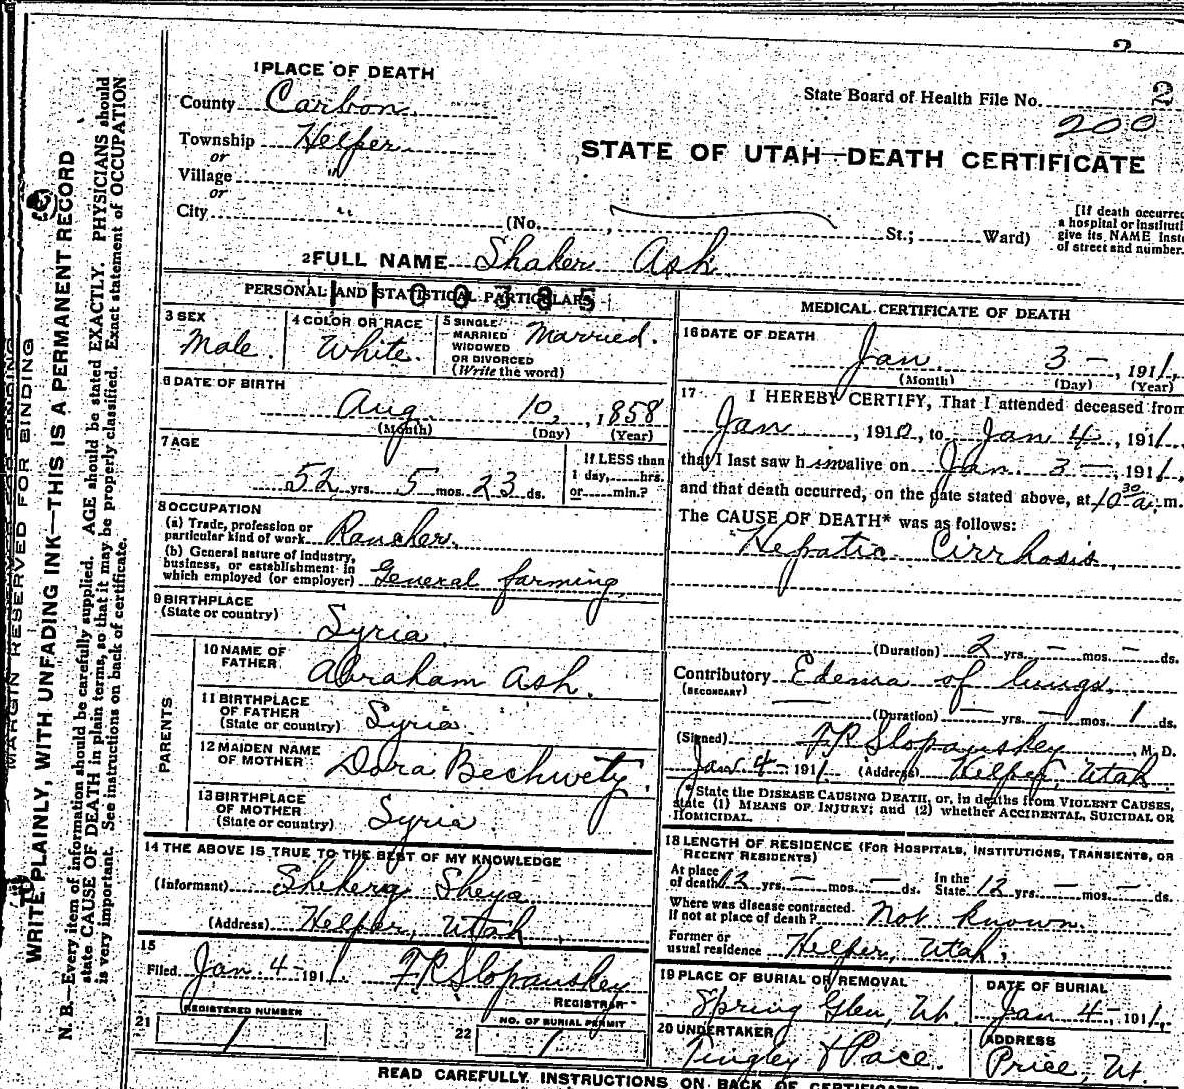 2
1 PLACE OF DEATH
County Carbon
State Board of Health File No. 2
200
Township Helper
or
Village "
or
City "
STATE OF UTAH—DEATH CERTIFICATE
(No. , St.; Ward)
[If death occurred
a hospital or instituti
give its NAME inst
of street and number.
2 FULL NAME Shaker Ash
PERSONAL AND STATISTICAL PARTICULARS
3 SEX
Male.
4 COLOR OR RACE
White.
5 SINGLE
MARRIED
WIDOWED
OR DIVORCED
(Write the word)
Married.
6 DATE OF BIRTH
Aug. 10, 1858
(Month) (Day) (Year)
7 AGE
52 yrs. 5 mos. 23 ds.
If LESS than
1 day, hrs.
or min.?
8 OCCUPATION
(a) Trade, profession or
particular kind of work Rancher.
(b) General nature of industry,
business, or establishment in
which employed (or employer) General farming
9 BIRTHPLACE
(State or country)
Syria
PARENTS
10 NAME OF
FATHER
Abraham Ash.
11 BIRTHPLACE
OF FATHER
(State or country) Syria
12 MAIDEN NAME
OF MOTHER Dora Bechwety.
13 BIRTHPLACE
OF MOTHER
(State or country) Syria
14 THE ABOVE IS TRUE TO THE BEST OF MY KNOWLEDGE
(Informant) Shekery Sheya
(Address) Helper, Utah
15
Filed Jan 4-1911. F.R. Slopanskey
REGISTRAR
21 REGISTERED NUMBER
1
22 NO. OF BURIAL PERMIT
1
MEDICAL CERTIFICATE OF DEATH
16 DATE OF DEATH
Jan 3 -, 1911,
(Month) (Day) (Year)
17 I HEREBY CERTIFY, That I attended deceased from
Jan , 1910, to Jan 4, 1911.
that I last saw him alive on Jan 3 - 1911,
and that death occurred, on the date stated above, at 10 30 a. m.
The CAUSE OF DEATH* was as follows:
Hepatic Cirrhosis
(Duration) 2 yrs. — mos. — ds.
Contributory Edema of lungs.
(SECONDARY)
(Duration) — yrs. — mos. 1 ds.
(Signed) F.R. Slopanskey, M. D.
Jan 4-1911 (Address) Helper, Utah
*State the DISEASE CAUSING DEATH, or, in deaths from VIOLENT CAUSES,
state (1) MEANS OF INJURY; and (2) whether ACCIDENTAL, SUICIDAL OR
HOMICIDAL.
18 LENGTH OF RESIDENCE (FOR HOSPITALS, INSTITUTIONS, TRANSIENTS, OR
RECENT RESIDENTS)
At place
of death 12 yrs. — mos. — ds.
In the
State 12 yrs. — mos. — ds.
Where was disease contracted.
If not at place of death? Not known.
Former or
usual residence Helper, Utah,
19 PLACE OF BURIAL OR REMOVAL
Spring Glen, Ut.
DATE OF BURIAL
Jan 4-, 1911,
20 UNDERTAKER
Tingley & Pace.
ADDRESS
Price, Ut.
READ CAREFULLY INSTRUCTIONS ON BACK OF CERTIFICATE
MARGIN RESERVED FOR BINDING
WRITE PLAINLY, WITH UNFADING INK—THIS IS A PERMANENT RECORD
N. B.—Every item of information should be carefully supplied. AGE should be stated EXACTLY. PHYSICIANS should
state CAUSE OF DEATH in plain terms, so that it may be properly classified. Exact statement of OCCUPATION
is very important. See instructions on back of certificate.